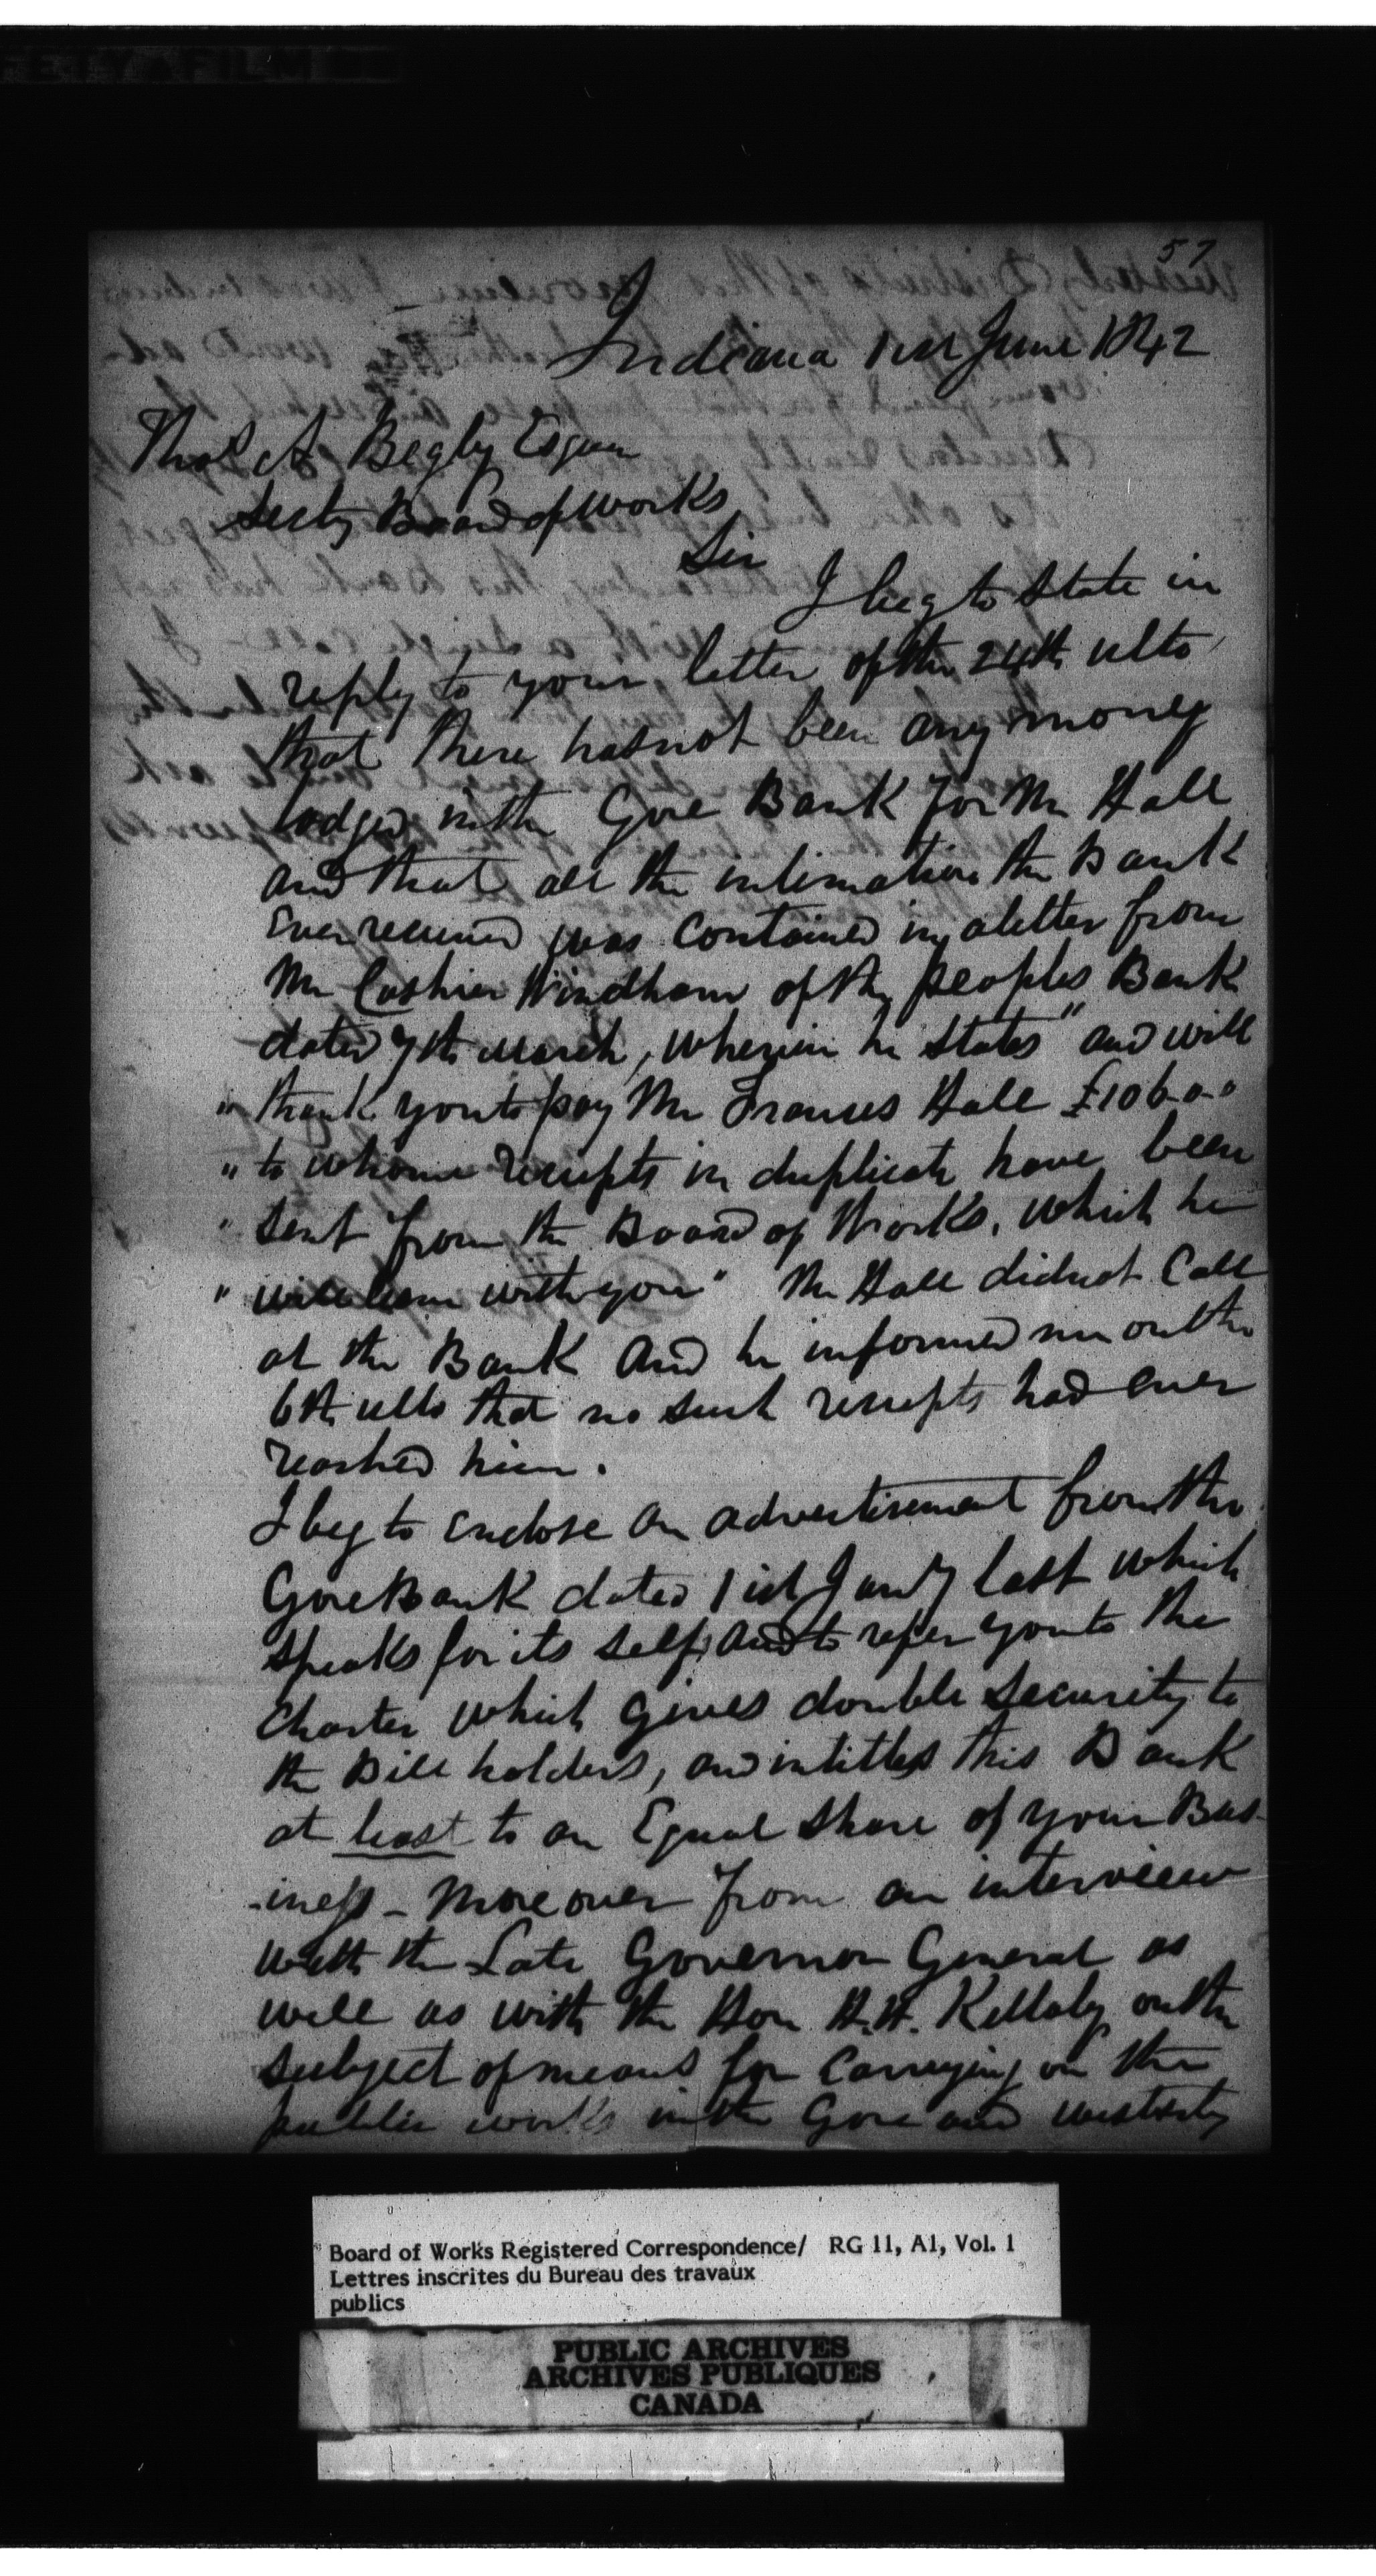 57
Indiana 1st June 1842
Thos A Begly Esquire
Secty Board of Works
Sir
I beg to State in
reply to your letter of the 24th ulto
that there has not been any money
lodged in the Gore Bank for Mr Hall
and that all the intimation the Bank
Ever received was contained in a letter from
Mr Cashier Windham of the Peoples Bank
dated 7th March, wherein he states "and will
" thank you to pay Mr Frances Hall £106-0-0
" to whome receipts in duplicate have been
" sent from the Board of Works, which he
" will leave with you" Mr Hall did not Call
at the Bank and he informed me on the
6th ulto that no such receipts had ever
reached him.
I beg to enclose an advertisement from the
Gore Bank dated 1st Jany last which
speaks for its self, and to refer you to the
Charter which gives double security to
the Bill holders, and intitles this Bank
at least to an Equal share of your Bus-
-iness - Moreover from an interview
with the Late Governor General as
well as with the Hon H.H. Killaly on the
subject of means for Carrying on the
public works in the Gore and westerly
Board of Works Registered Correspondence/ RG 11, A1, Vol. 1
Lettres inscrites du Bureau des travaux
publics
PUBLIC ARCHIVES
ARCHIVES PUBLIQUES
CANADA